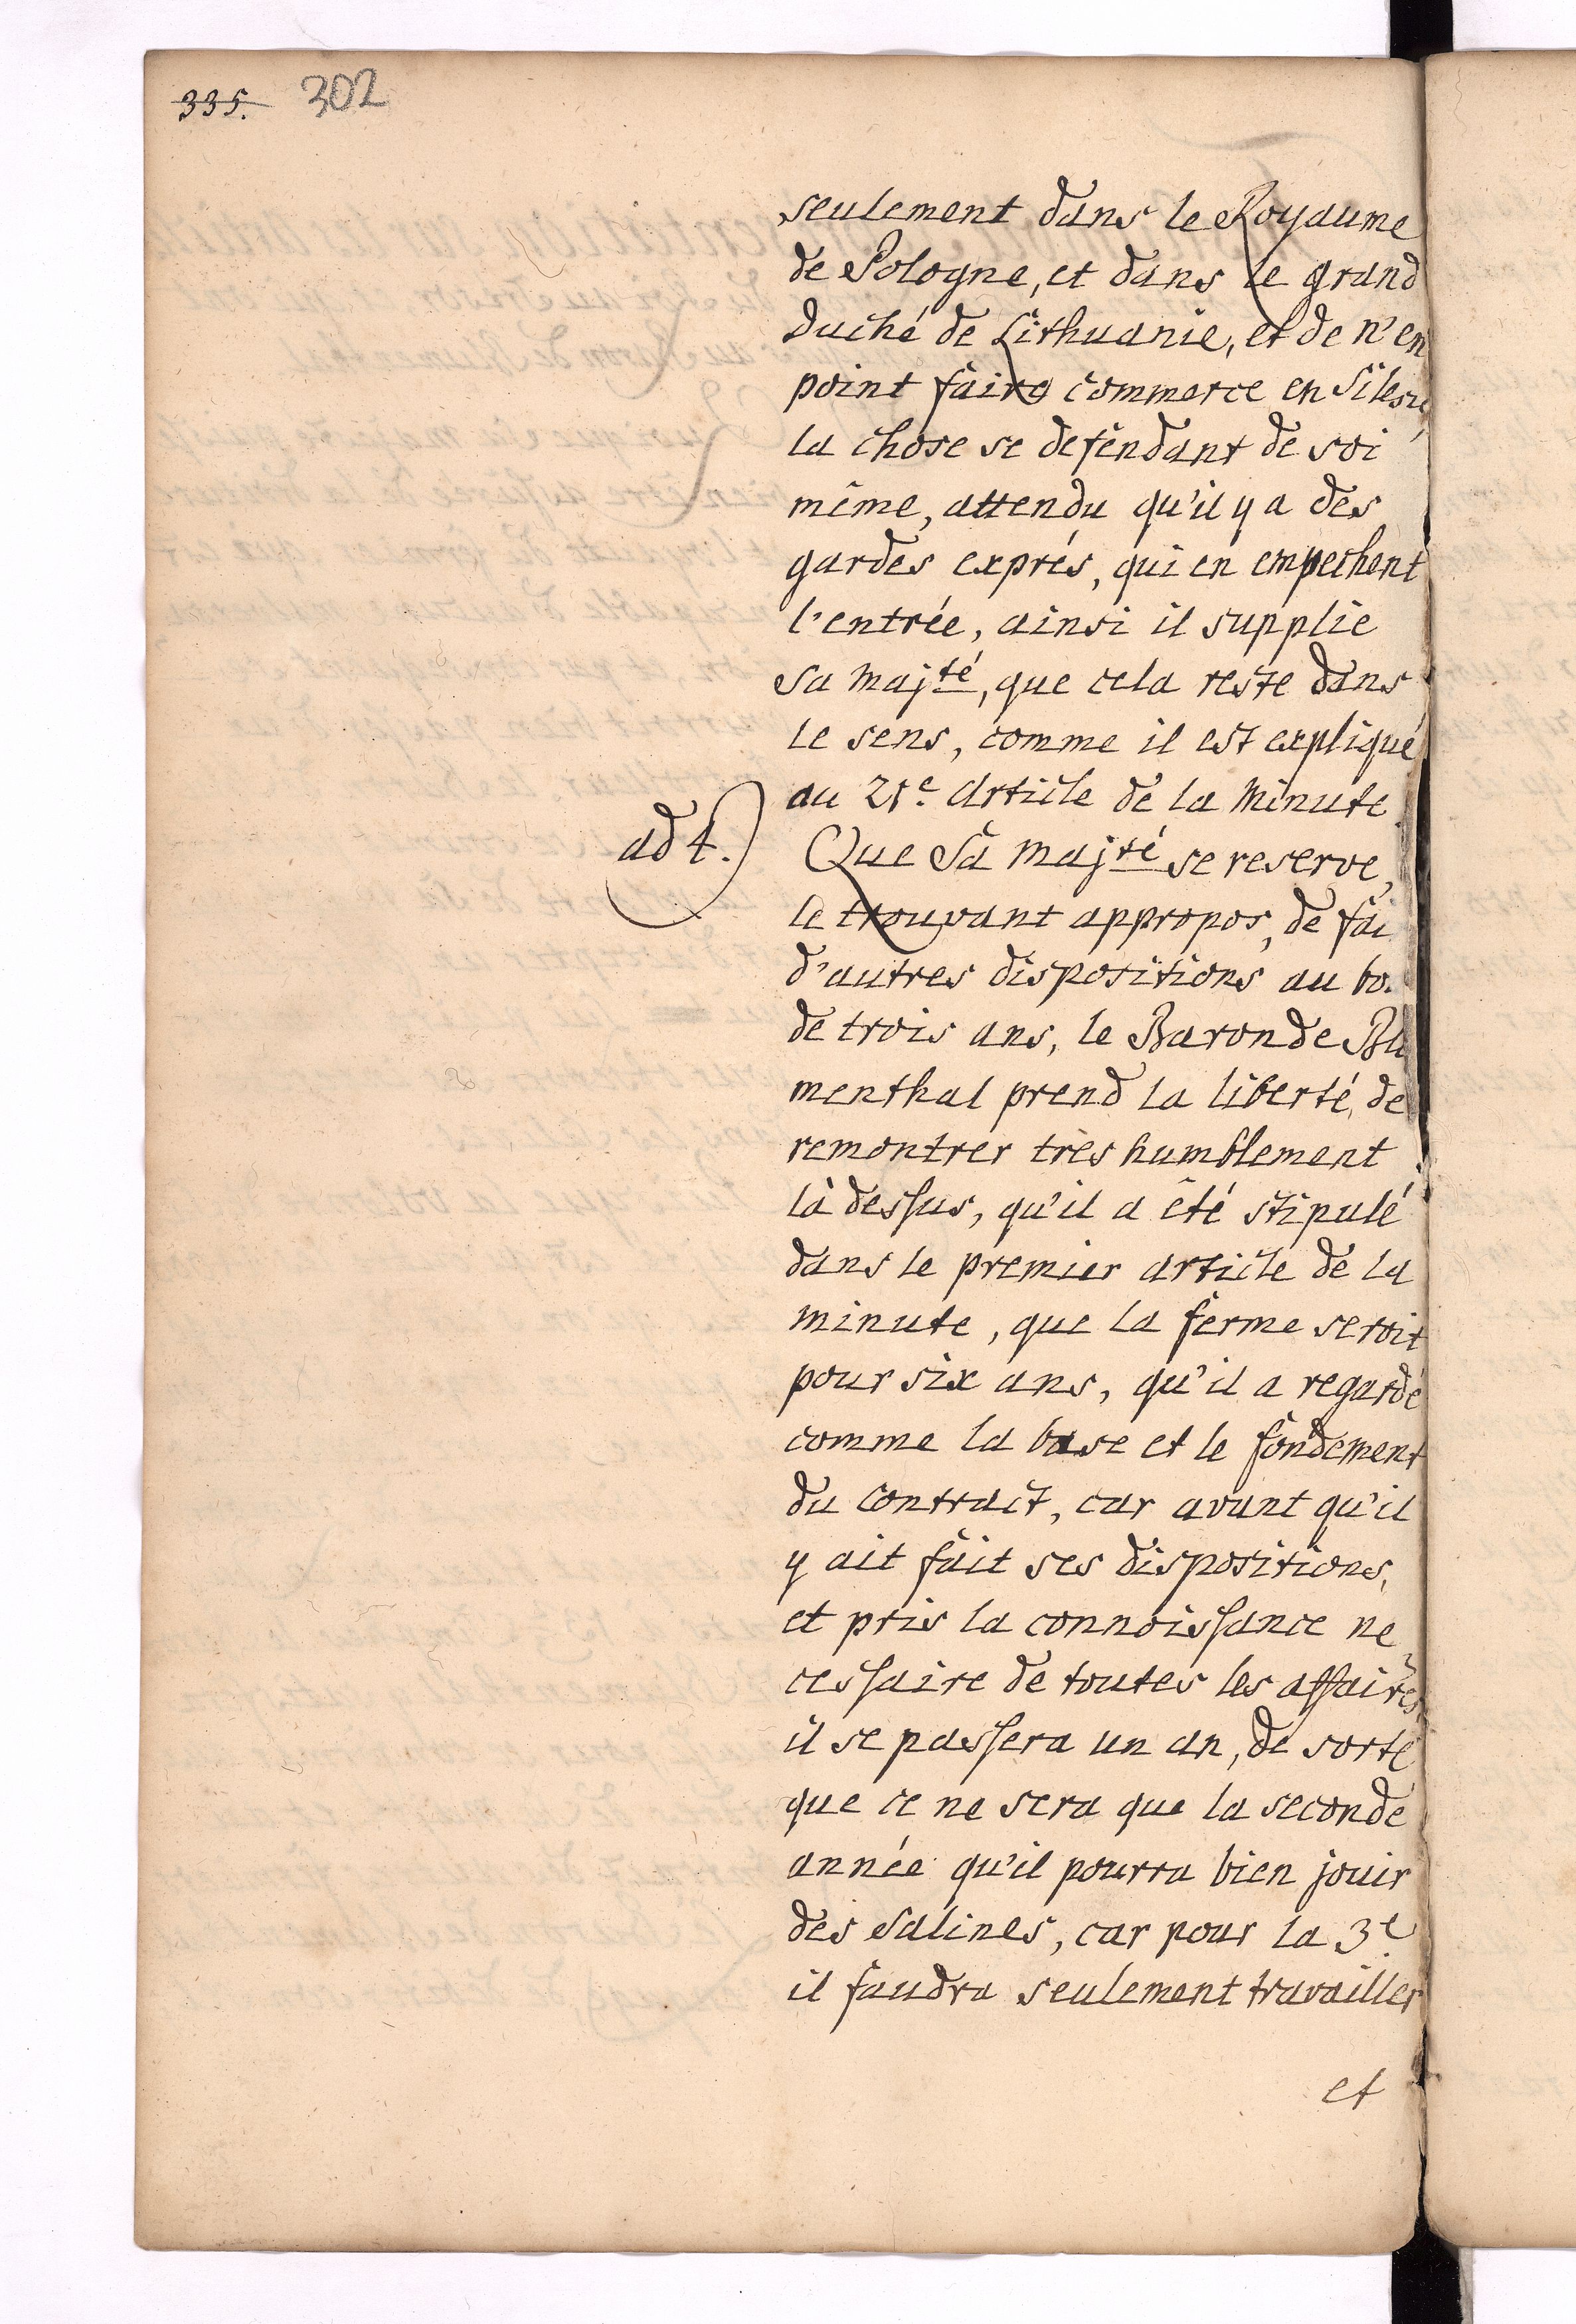 335. 302
seulement dans le Royaume
de Pologne, et dans le grand
Duché de Lithuanie, et de n'en
point faire commerce en Silesie
la chose se defendant de soi
même, attendu qu'il y a des
gardes exprés, qui en empechent
l'entrée, ainsi il supplie
Sa Majté, que cela reste dans
le sens, comme il est expliqué
au 21e. Article de la Minute
ad 4.) Que Sa Majté se reserve,
le trouvant appropos, de fai
d'autres dispositions au bo
de trois ans, le Baron de Blu
menthal prend la liberté de
remontrer très humblement
là dessus, qu'il a été stipulé
dans le premier article de la
minute, que la ferme seroit
pour six ans, qu'il a regardé
comme la base et le fondement
du Contract, car avant qu'il
y ait fait ses dispositions,
et pris la connoissance ne
cessaire de toutes les affaires,
il se passera un an, de sorte
que ce ne sera que la seconde
année qu'il pourra bien jouir
des Salines, car pour la 3e
il faudra seulement travailler
et